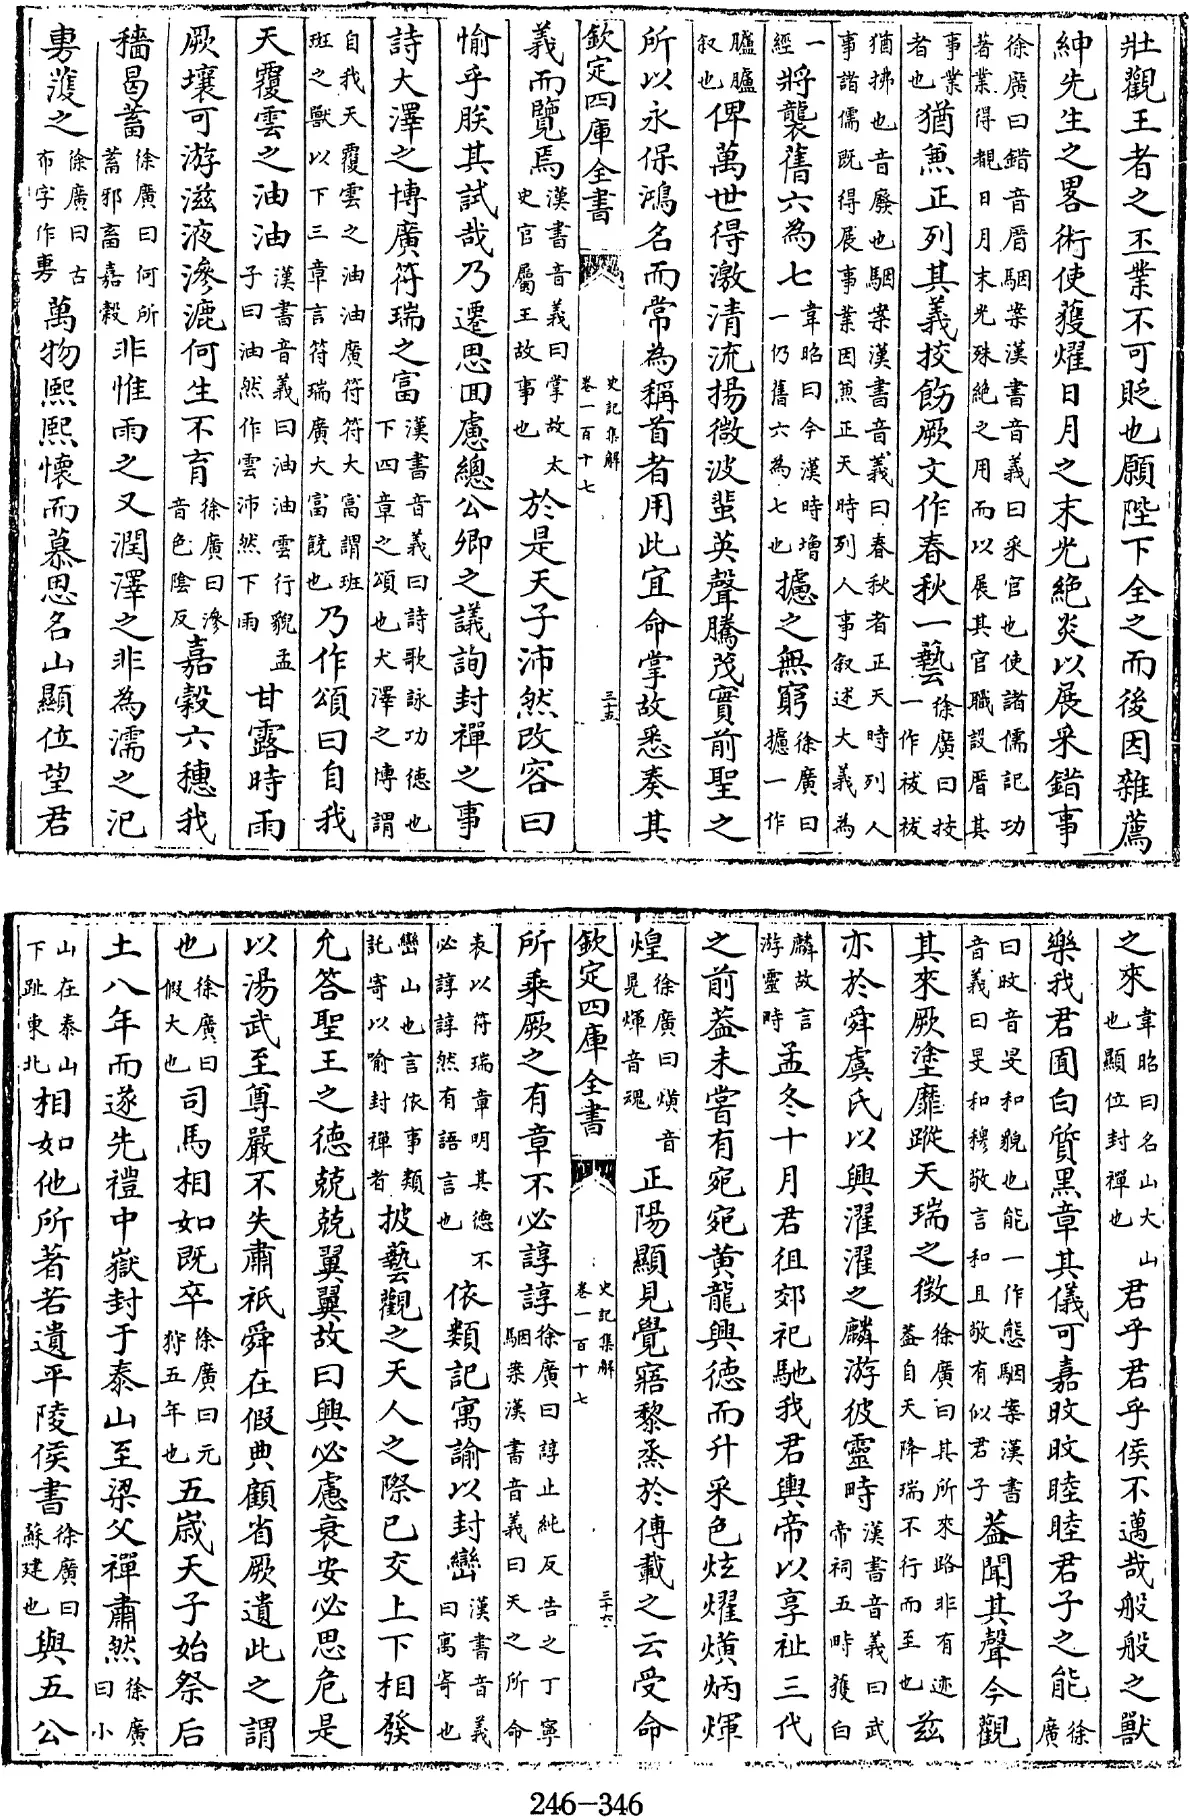 壯觀王者之丕業不可貶也願陛下全之而後因雜薦
紳先生之畧術使獲燿日月之末光絶炎以展采錯事
徐廣曰錯音厝駰案漢書音義曰采官也使諸儒記功
著業得覩日月末光殊絶之用而以展其官職設厝其
事業者也猶兼正列其義挍飭厥文作春秋一藝徐廣曰挍一作袚袚
猶拂也音廢也駰案漢書音義曰春秋者正天時列人
事諸儒既得展事業因兼正天時列人事叙述大義為
一經將襲舊六為七韋昭曰今漢時增一仍舊六為七也攄之無窮徐廣曰攄一作
臚臚叙也俾萬世得激清流揚微波蜚英聲騰茂實前聖之
所以永保鴻名而常為稱首者用此宜命掌故悉奏其
欽定四庫全書 史記集解 卷一百十七 三十五
義而覽焉漢書音義曰掌故太史官屬主故事也於是天子沛然改容曰
愉乎朕其試哉乃遷思回慮總公卿之議詢封禪之事
詩大澤之博廣符瑞之富漢書音義曰詩歌詠功德也下四章之頌也大澤之博謂
自我天覆雲之油油廣符符大富謂班班之獸以下三章言符瑞廣大富饒也乃作頌曰自我
天覆雲之油油漢書音義曰油油雲行貌孟子曰油然作雲沛然下雨甘露時雨
厥壤可游滋液滲漉何生不育徐廣曰滲音色陰反嘉穀六穗我
穡曷蓄徐廣曰何所蓄邪畜嘉穀非惟雨之又潤澤之非為濡之氾
旉濩之徐廣曰古布字作旉萬物熙熙懷而慕思名山顯位望君
之來韋昭曰名山大山也顯位封禪也君乎君乎侯不邁哉般般之獸
樂我君囿白質黑章其儀可嘉旼旼睦睦君子之能徐廣
曰旼音旻和貌也能一作態駰案漢書音義曰旻和穆敬言和且敬有似君子蓋聞其聲今觀
其來厥塗靡蹤天瑞之徵徐廣曰其所來路非有迹蓋自天降瑞不行而至也茲
亦於舜虞氏以興濯濯之麟游彼靈畤漢書音義曰武帝祠五畤獲白
麟故言游靈畤孟冬十月君徂郊祀馳我君輿帝以享祉三代
之前蓋未嘗有宛宛黃龍興德而升采色炫燿熿炳煇
煌徐廣曰熿音晃煇音魂正陽顯見覺寤黎烝於傳載之云受命
欽定四庫全書 史記集解 卷一百十七 三十六
所乘厥之有章不必諄諄徐廣曰諄止純反告之丁寧駰案漢書音義曰天之所命
表以符瑞章明其德不必諄諄然有語言也依類記寓諭以封巒漢書音義曰寓寄也
巒山也言依事類託寄以喻封禪者披藝觀之天人之際已交上下相發
允答聖王之德兢兢翼翼故曰興必慮衰安必思危是
以湯武至尊嚴不失肅祇舜在假典顧省厥遺此之謂
也徐廣曰假大也司馬相如既卒徐廣曰元狩五年也五歲天子始祭后
土八年而遂先禮中嶽封于泰山至梁父禪肅然徐廣曰小
山在泰山下趾東北相如他所著若遺平陵侯書徐廣曰蘇建也與五公
246-346